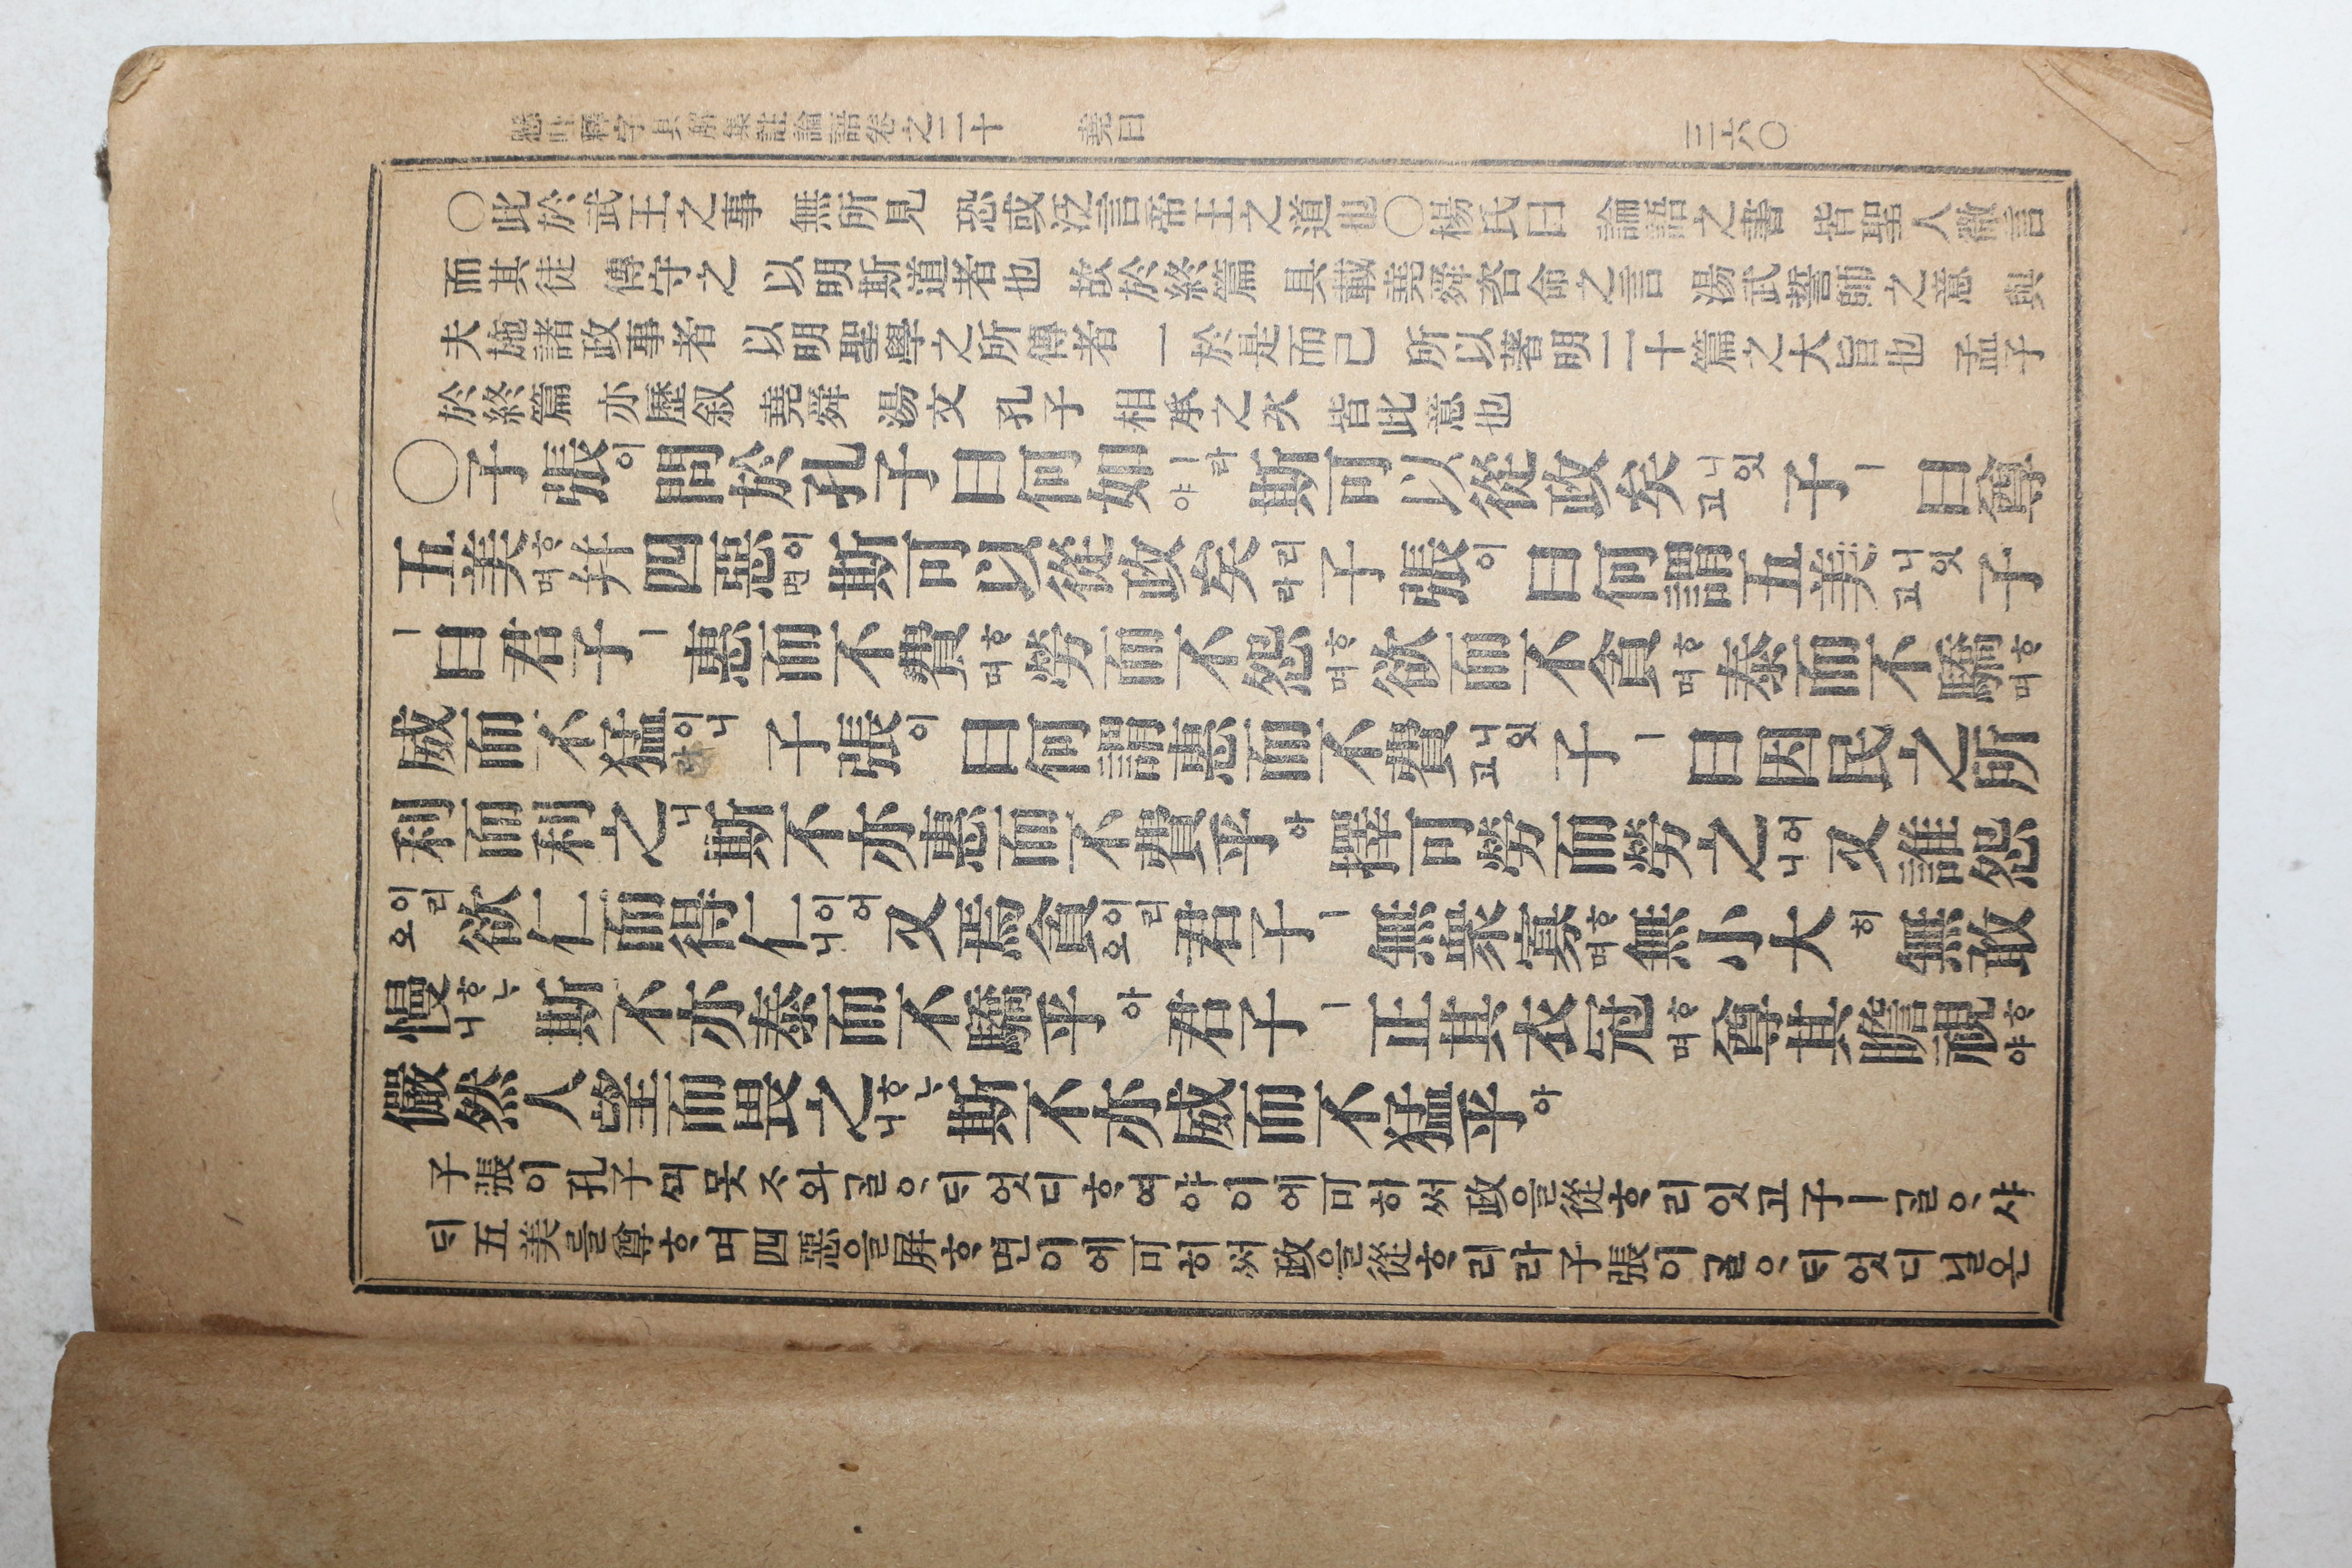 懸吐釋字具解集註論語卷之二十 堯曰 三六〇
〇此於武王之事 無所見 恐或泛言帝王之道也〇楊氏曰 論語之書 皆聖人微言
而其徒 傳守之 以明斯道者也 故於終篇 具載堯舜咨命之言 湯武誓師之意 與
夫施諸政事者 以明聖學之所傳者 一於是而己 所以著明二十篇之大旨也 孟子
於終篇 亦歷叙 堯舜 湯文 孔子 相承之次 皆此意也
〇子張이問於孔子曰何如ㅣ라야斯可以從政矣니잇고子ㅣ曰尊
五美ᄒᆞ며屛四惡이면斯可以從政矣리라子張이曰何謂五美니잇고子
ㅣ曰君子ㅣ惠而不費ᄒᆞ며勞而不怨ᄒᆞ며欲而不貪ᄒᆞ며泰而不驕ᄒᆞ며
威而不猛이니라子張이曰何謂惠而不費니잇고子ㅣ曰因民之所
利而利之니斯不亦惠而不費乎아擇可勞而勞之어니又誰怨
이리오欲仁而得仁이어니又焉貪이리오君子ㅣ無衆寡ᄒᆞ며無小大히無敢
慢ᄒᆞᄂᆞ니斯不亦泰而不驕乎아君子ㅣ正其衣冠ᄒᆞ며尊其瞻視ᄒᆞ야
儼然人望而畏之ᄒᆞᄂᆞ니斯不亦威而不猛乎아
子張이孔子ᄭᅴ못ᄌᆞ와ᄀᆞᆯᄋᆞᄃᆡ엇디ᄒᆞ여야이에可히써政을從ᄒᆞ리잇고子ㅣᄀᆞᆯᄋᆞ샤
ᄃᆡ五美를尊ᄒᆞ며四惡을屛ᄒᆞ면이에可히써政을從ᄒᆞ리라子張이ᄀᆞᆯᄋᆞᄃᆡ엇디닐온